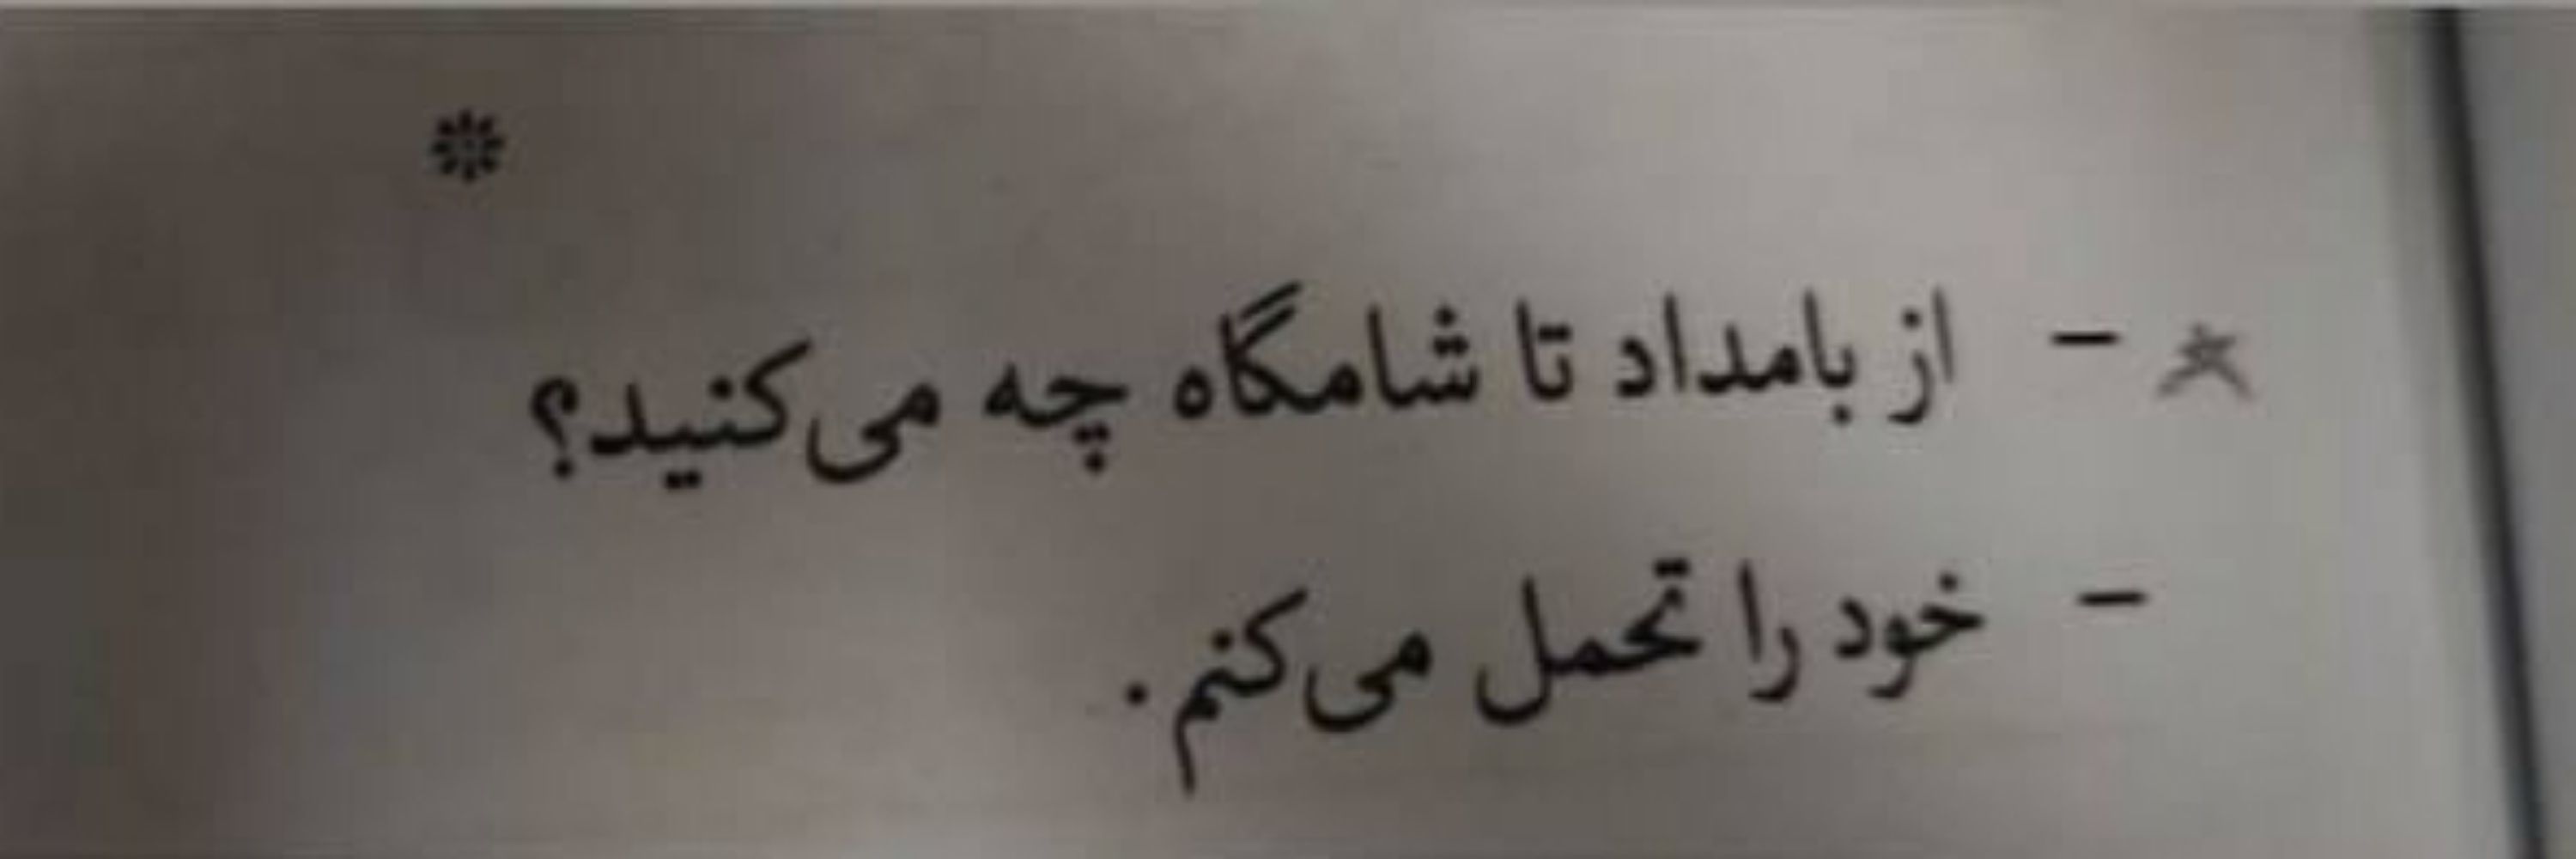 - از بامداد تا شامگاه چه می‌کنید؟
- خود را تحمل می‌کنم.